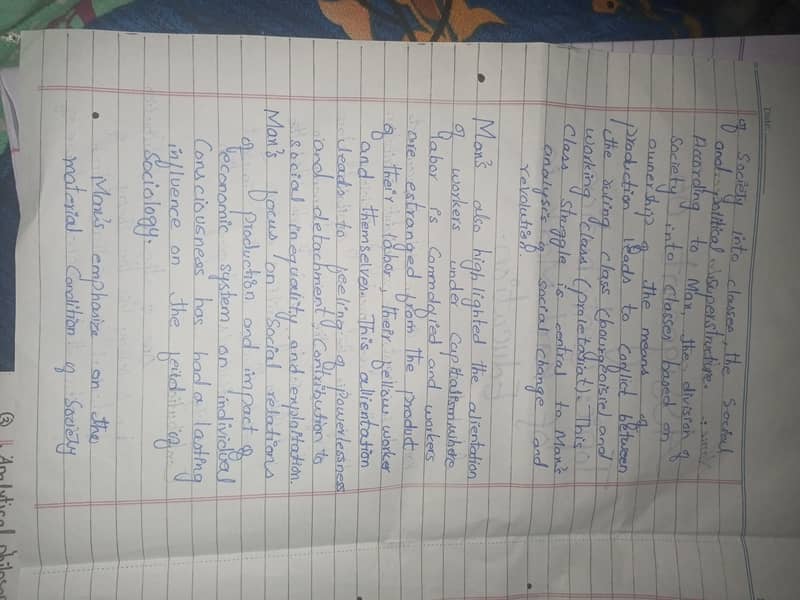 Date
of Society into classes, the Social
and political superstructure.
According to Max, the division of
Society into classes based on
ownership of the means of
production leads to conflict between
the ruling class (bourgeoisie) and
working class (proletariat). This
Class Struggle is central to Max's
analysis of social change and
revolution.
• Max's also highlighted the alientation
of workers under capitalism where
labor is Commodified and workers
are estranged from the product
of their labor, their fellow worker
and themselves. This allientation
leads to feeling of powerlessness
and detachment, Contribution to
social inequality and exploitation.
Max's focus on social relations
of production and impact of
economic system on individual
Consciousness has had a lasting
influence on the feild of
Sociology.
• Max's emphasize on the
material Condition of Society
③ Analytical philosop